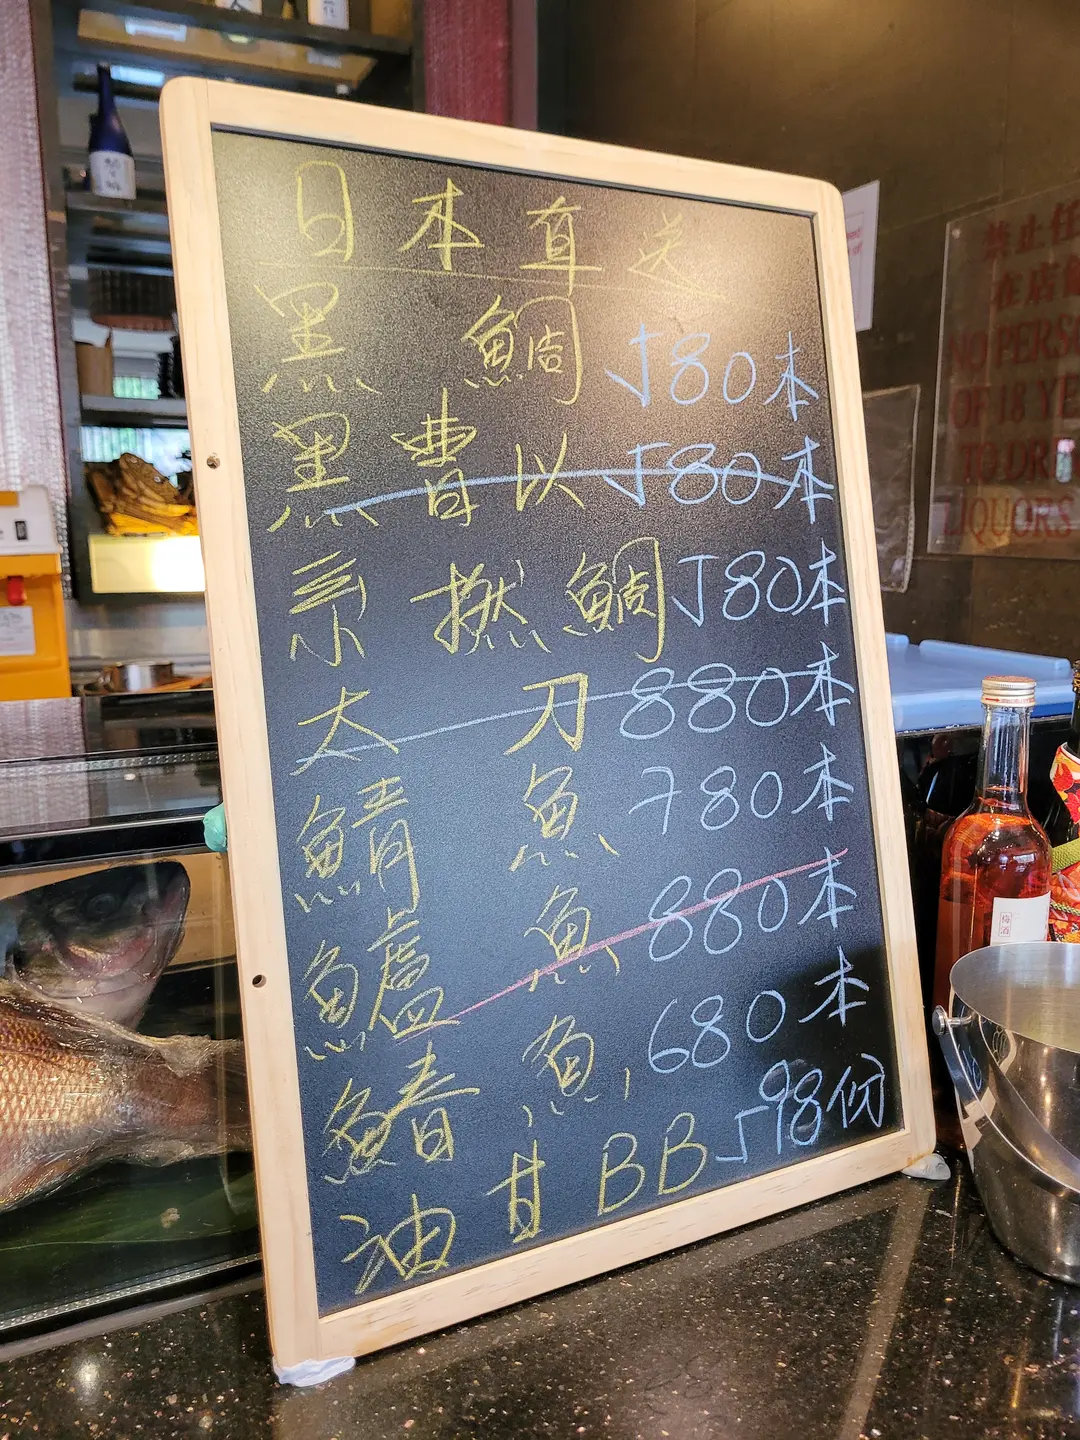 日本直送
黑鯛 580本
黑曹以 580本
系撚鯛 580本
太刀 880本
鯖魚 780本
鱸魚 880本
鰆魚 680本
油甘BB 598份
禁止任
在店
NO
OF 18
LIQUORS
梅酒